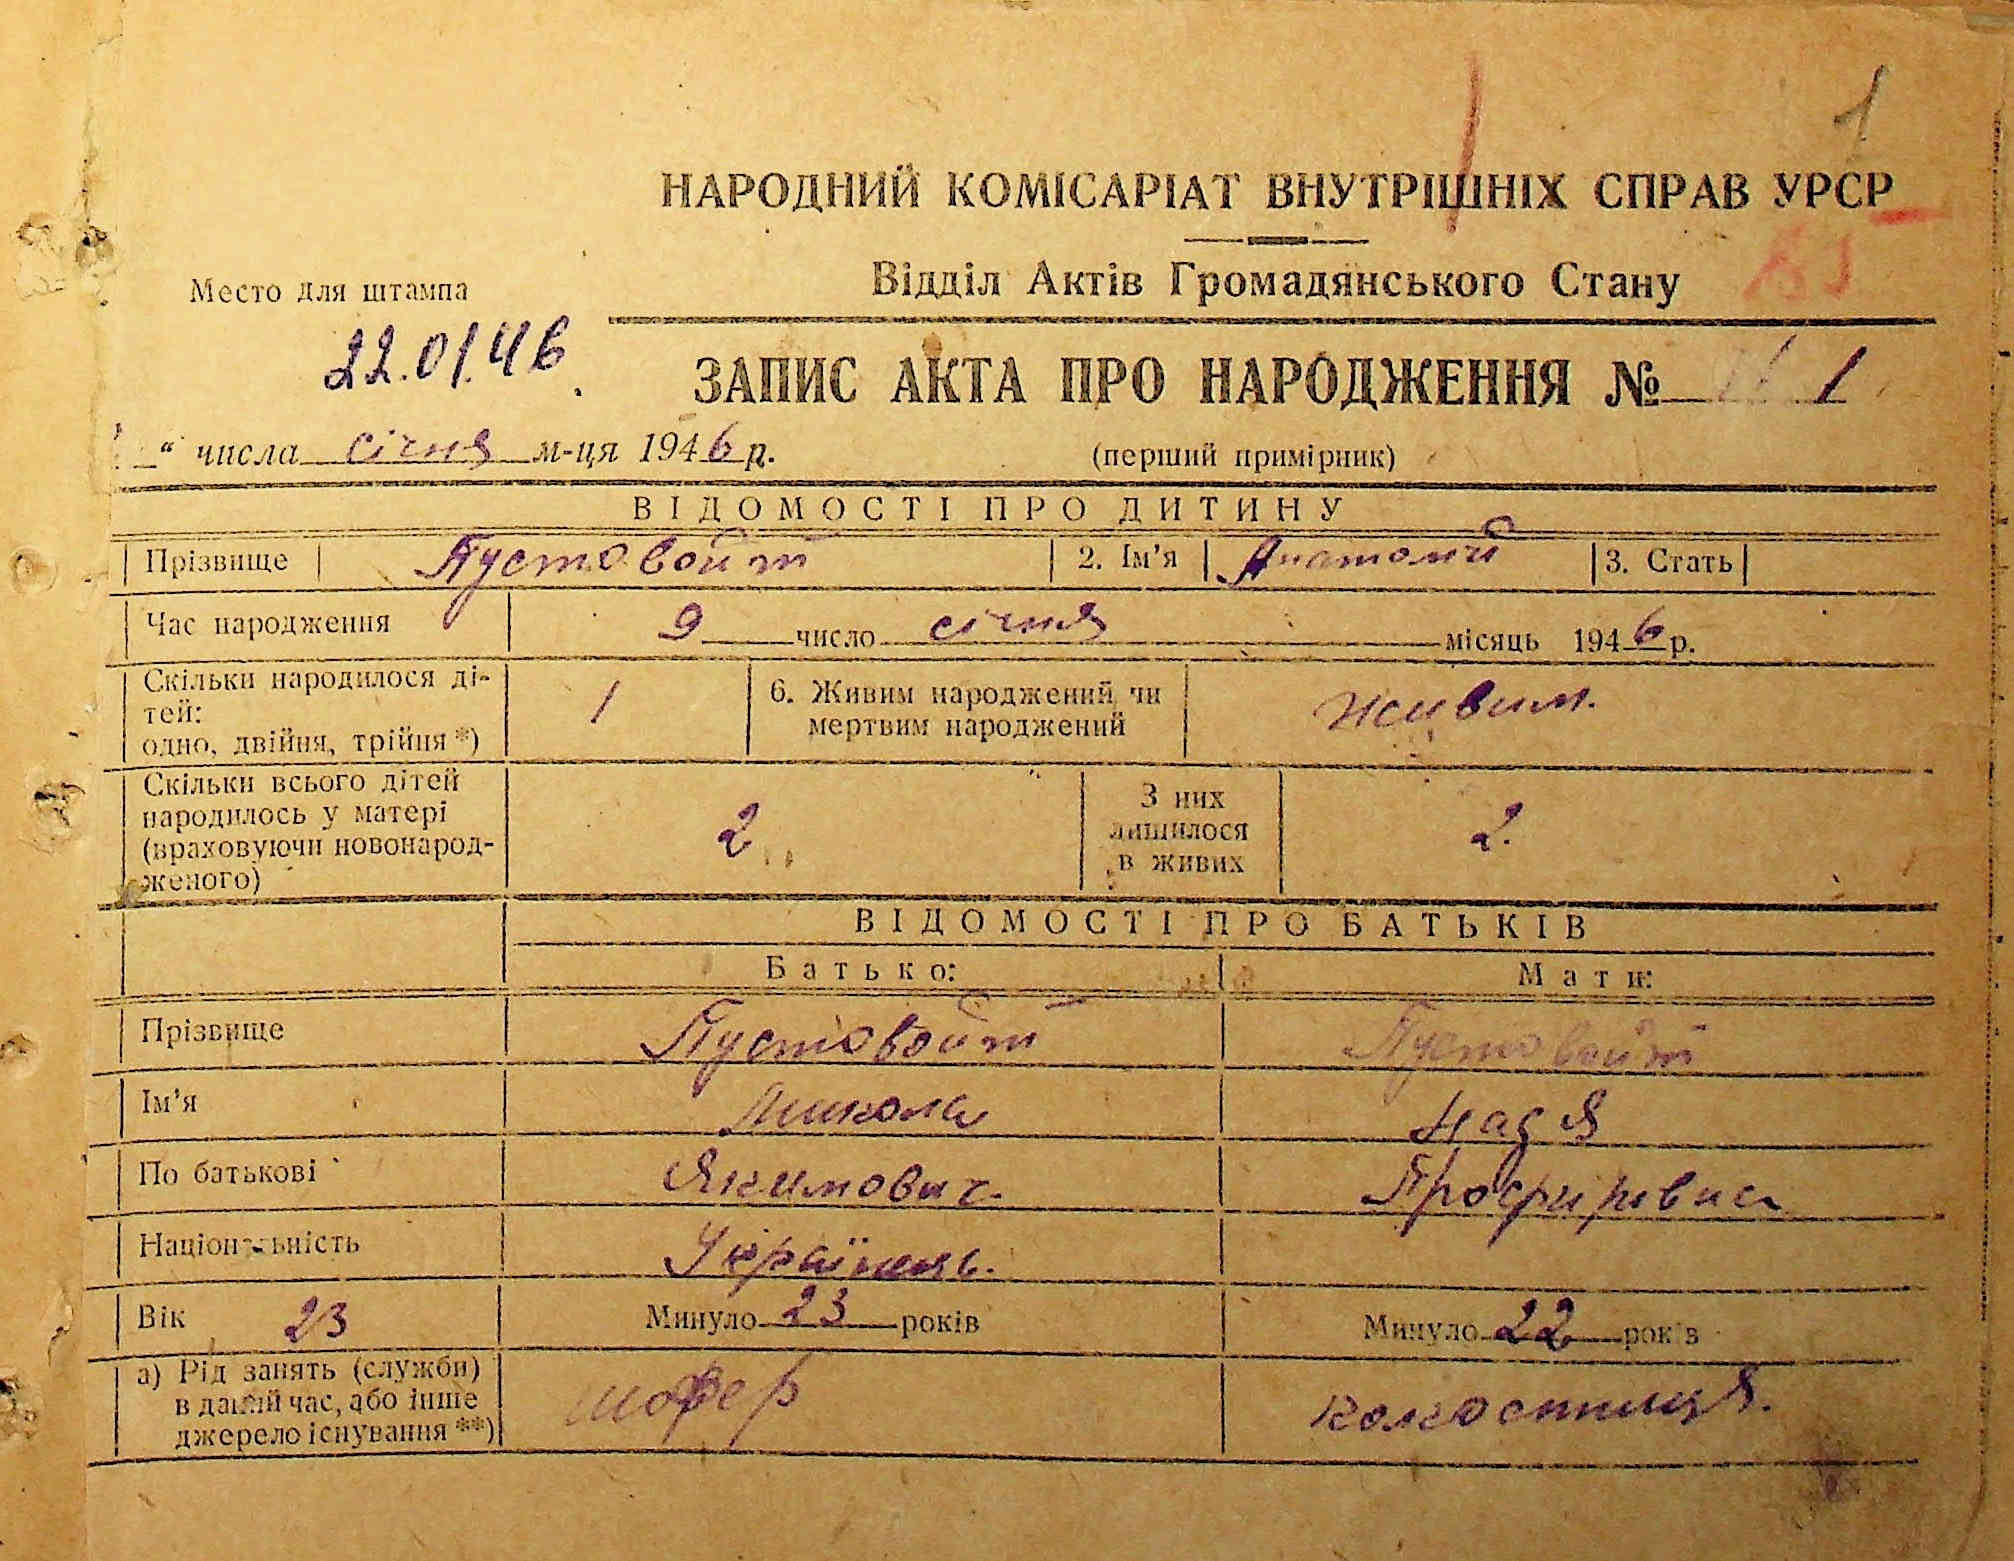 1
НАРОДНИЙ КОМІСАРІАТ ВНУТРІШНІХ СПРАВ УРСР
Відділ Актів Громадянського Стану
Место для штампа
22.01.46
ЗАПИС АКТА ПРО НАРОДЖЕННЯ № 1
“ числа січня м-ця 1946 р.
(перший примірник)
ВІДОМОСТІ ПРО ДИТИНУ
Прізвище Пустовойт 2. Ім'я Анатолій 3. Стать
Час народження 9 число січня місяць 1946 р.
Скільки народилося ді-
тей:
одно, двійня, трійня *)
1
6. Живим народжений чи
мертвим народжений
живим.
Скільки всього дітей
народилось у матері
(враховуючи новонарод-
женого)
2
З них
лишилося
в живих
2.
ВІДОМОСТІ ПРО БАТЬКІВ
Батько: Мати:
Прізвище Пустовойт Пустовойт
Ім'я Микола Надя
По батькові Якимович.
Національність Українець.
Вік 23 Минуло 23 років Минуло 22 рок в
а) Рід занять (служби)
в даний час, або інше
джерело існування **)
шофер колгоспниця.